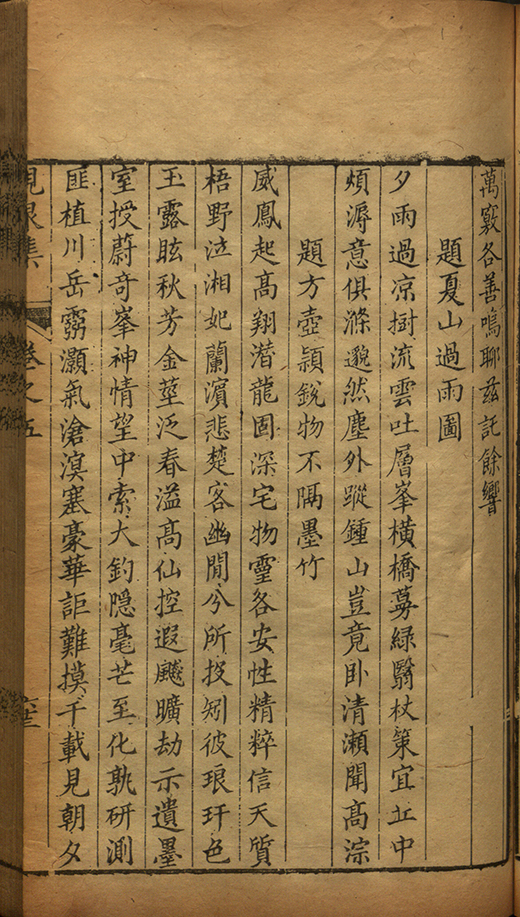 萬竅各善鳴聊玆託餘響
題夏山過雨圖
夕雨過凉樹流雲吐層峯橫橋蕚綠翳杖策宜丘中
煩溽意俱滌邈然塵外蹤鍾山豈竟卧清瀨聞高淙
題方壺頴銳物不隔墨竹
威鳳起高翔潛龍固深宅物靈各安性精粹信天質
梧野泣湘妃蘭濱悲楚客幽閒兮所投矧彼琅玕色
玉露眩秋芳金莖泛春溢高仙控遐飈曠劫示遺墨
室授蔚奇峯神情望中索大鈞隐毫芒至化孰研測
匪植川岳霛灝氣滄溟塞豪華詎難摸千載見朝夕
見泉集 卷之五 六十三